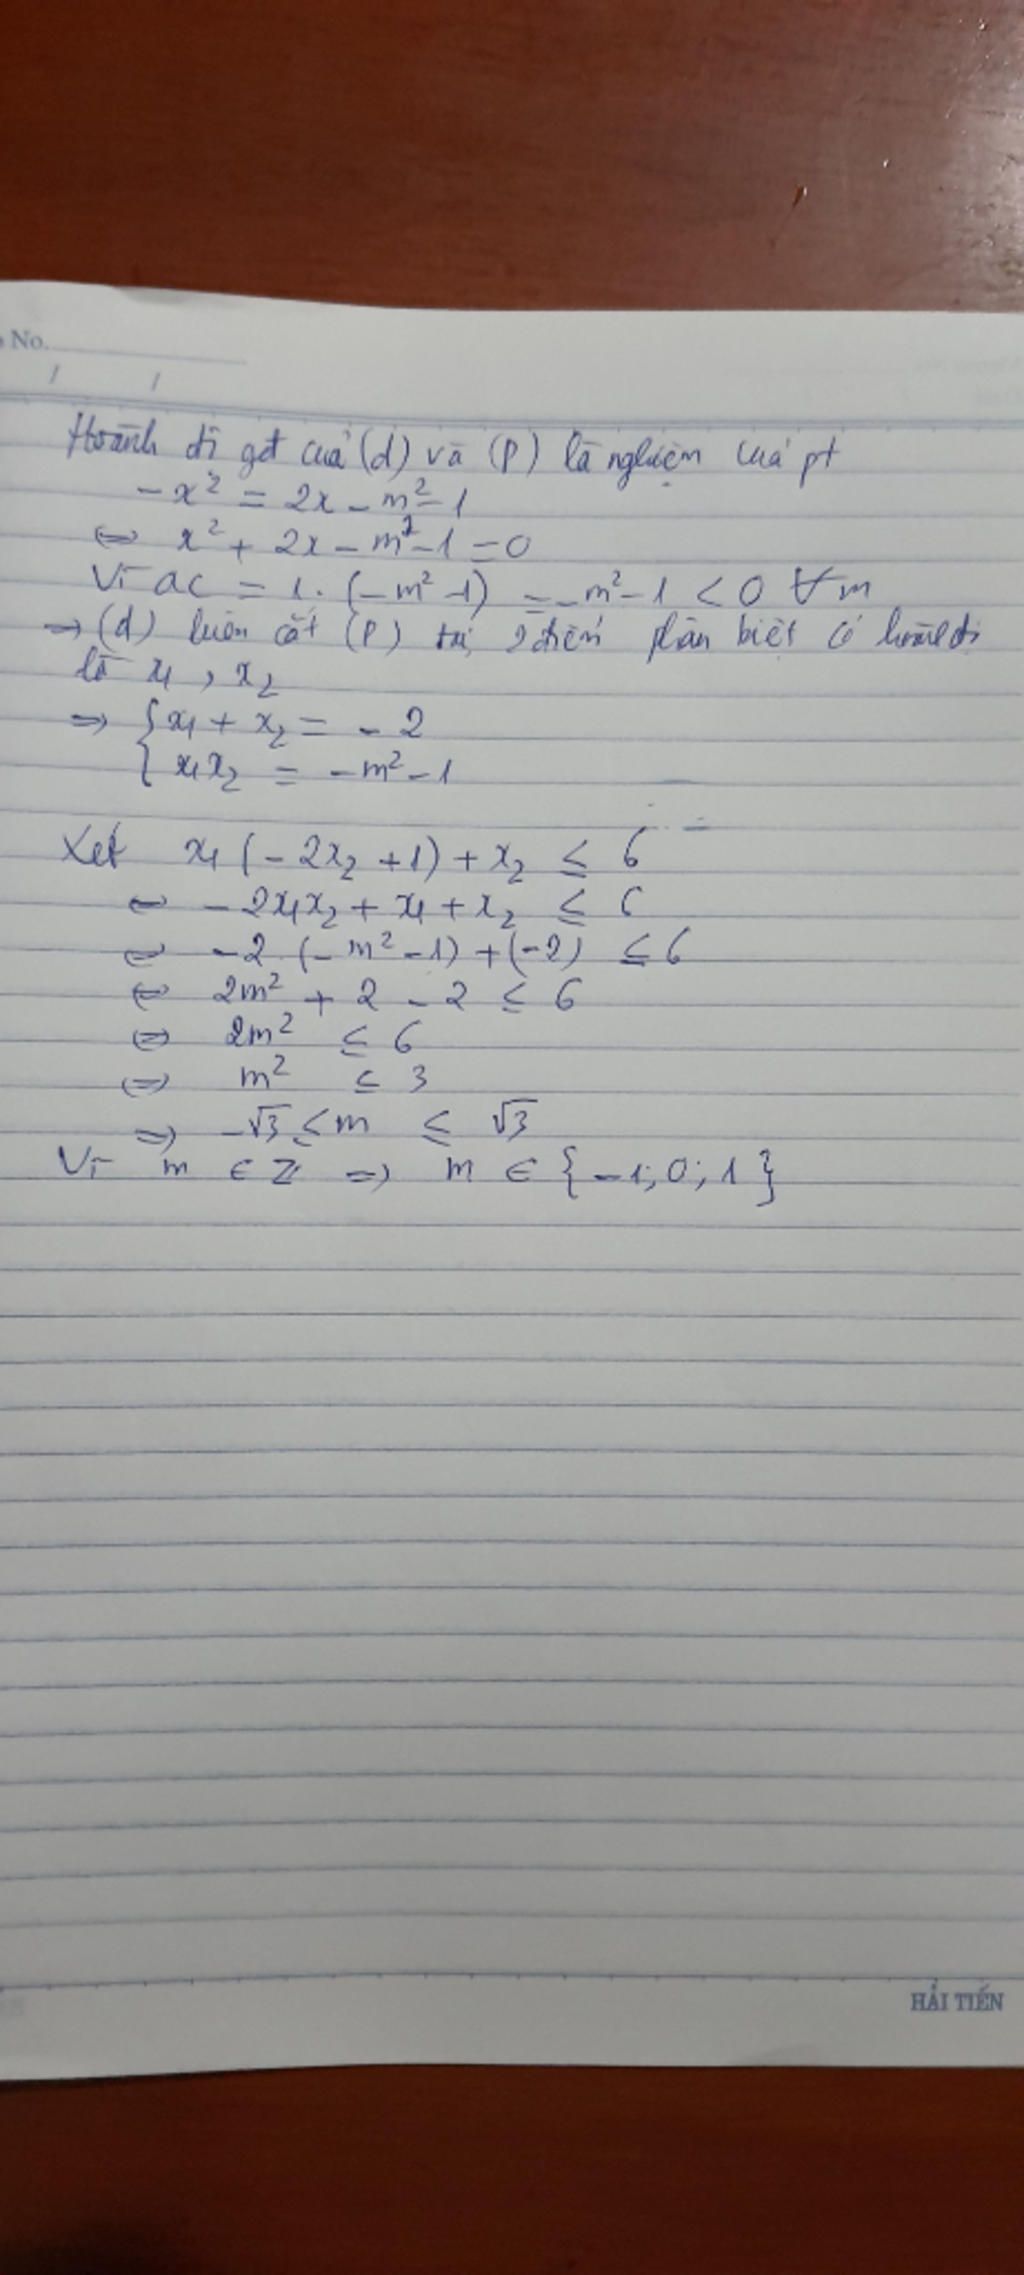 No.
Hoành độ gđ của (d) và (P) là nghiệm của pt
-x² = 2x - m² - 1
⇔ x² + 2x - m² - 1 = 0
Vì ac = 1 . (-m² - 1) = -m² - 1 < 0 ∀m
⇒ (d) luôn cắt (P) tại 2 điểm phân biệt có hoành độ
là x₁ , x₂
⇒ { x₁ + x₂ = -2
x₁x₂ = -m² - 1
Xét x₁ (-2x₂ + 1) + x₂ ≤ 6
⇔ -2x₁x₂ + x₁ + x₂ ≤ 6
⇔ -2 (-m² - 1) + (-2) ≤ 6
⇔ 2m² + 2 - 2 ≤ 6
⇔ 2m² ≤ 6
⇔ m² ≤ 3
⇒ -√3 ≤ m ≤ √3
Vì m ∈ Z ⇒ m ∈ {-1; 0; 1}
HẢI TIẾN